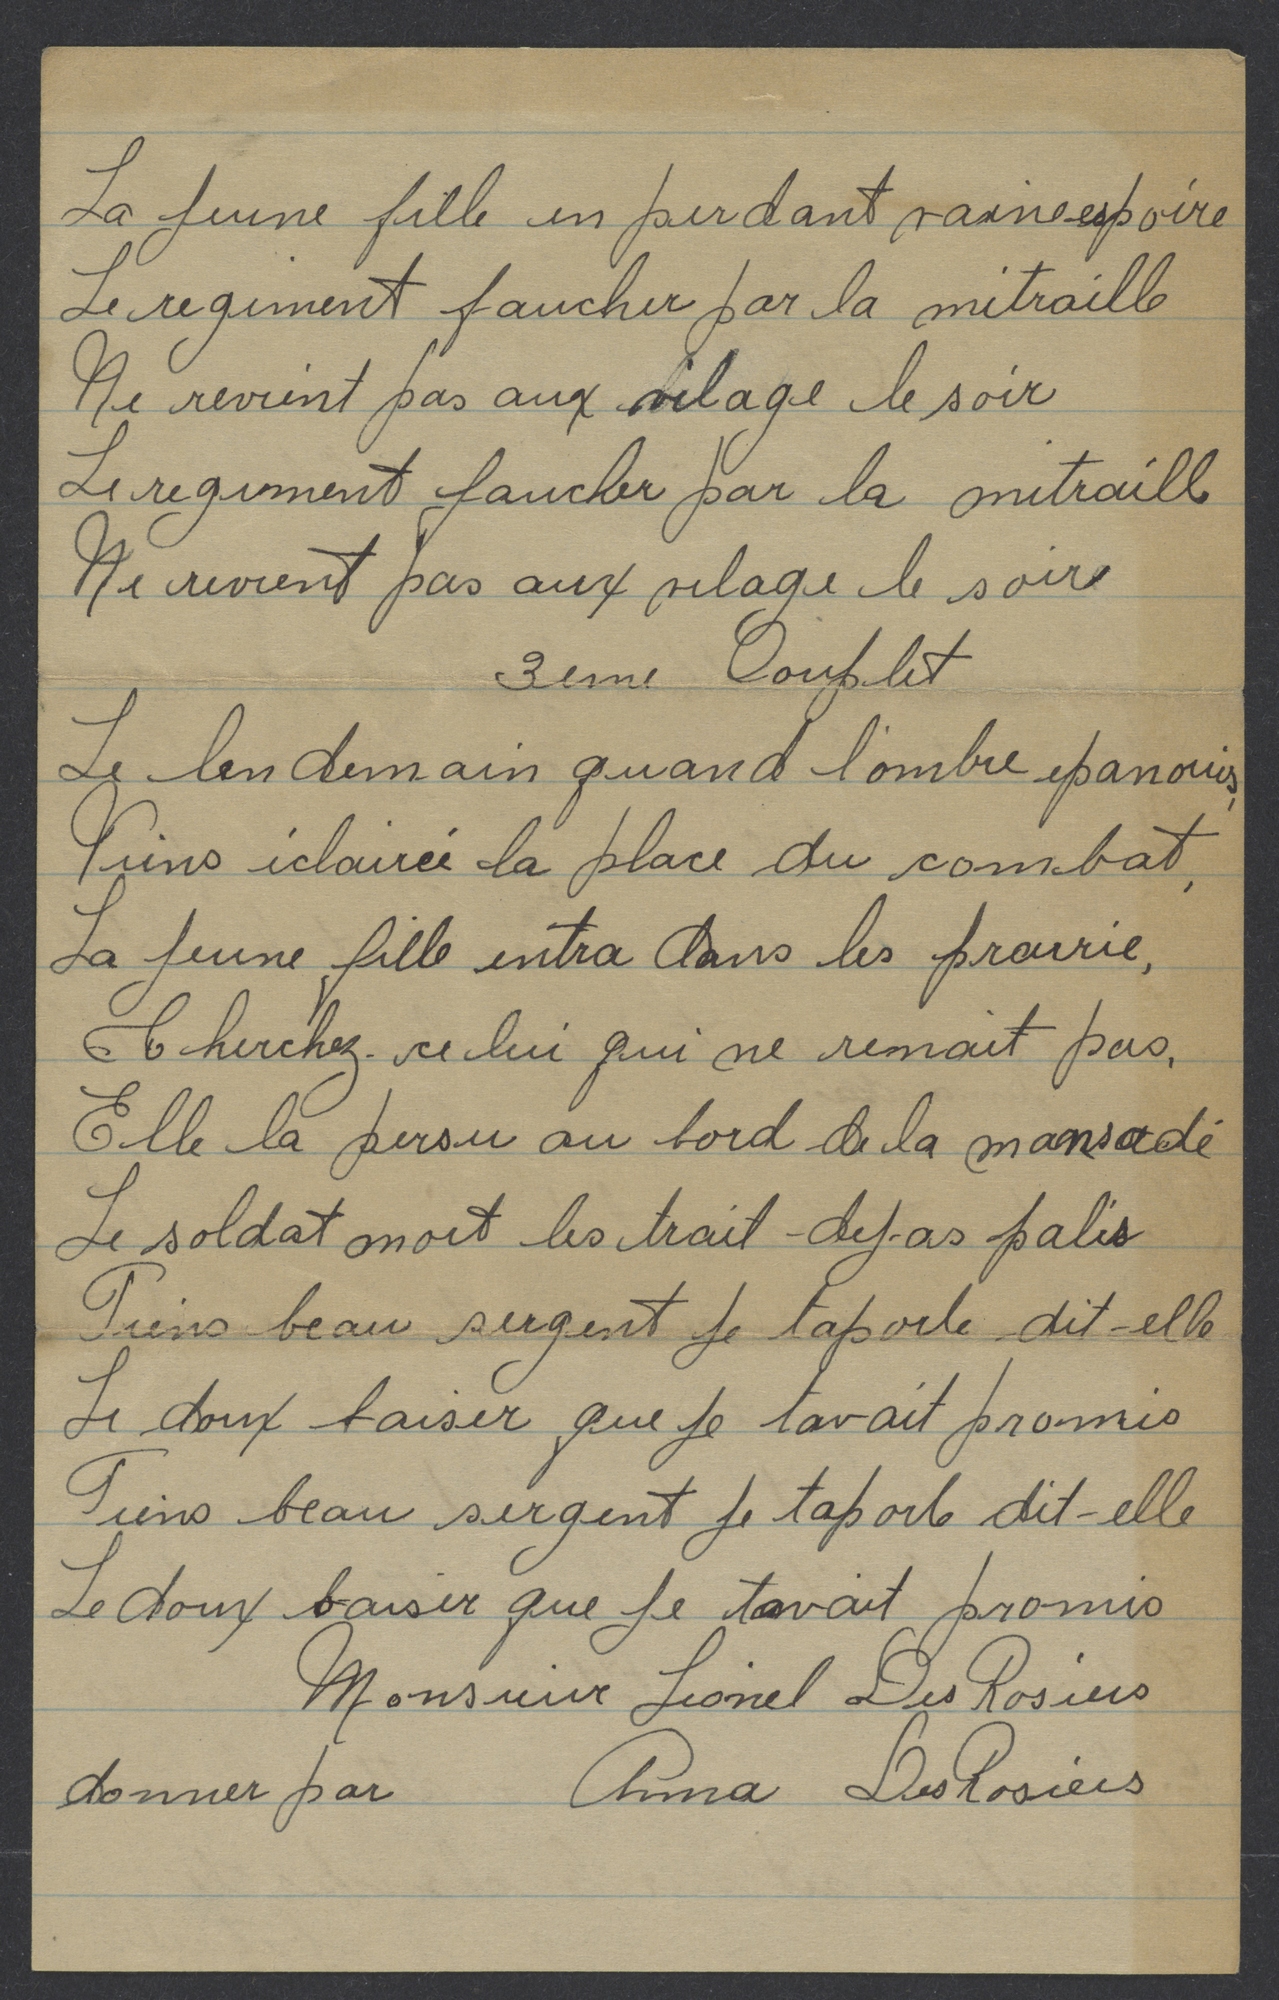 La jeune fille en perdant vaine espoire
Le regiment faucher par la mitraille
Ne revient pas aux vilage le soir
Le regiment faucher par la mitraille
Ne revient pas aux vilage le soire
3eme Couplet
Le lendemain quand l'ombre epanouis,
Viens éclairée la place du combat,
La jeune fille entra dans les prairie,
Cherchez celui qui ne renait pas,
Elle la persu au bord de la mansadé
Le soldat mort les trait dejas palis
Tiens beau sergent je taporte dit-elle
Le doux baiser que je tavait promis
Tiens beau sergent je taporte dit-elle
Le doux baiser que je tavait promis
Monsieur Lionel DesRosiers
donner par Anna DesRosiers